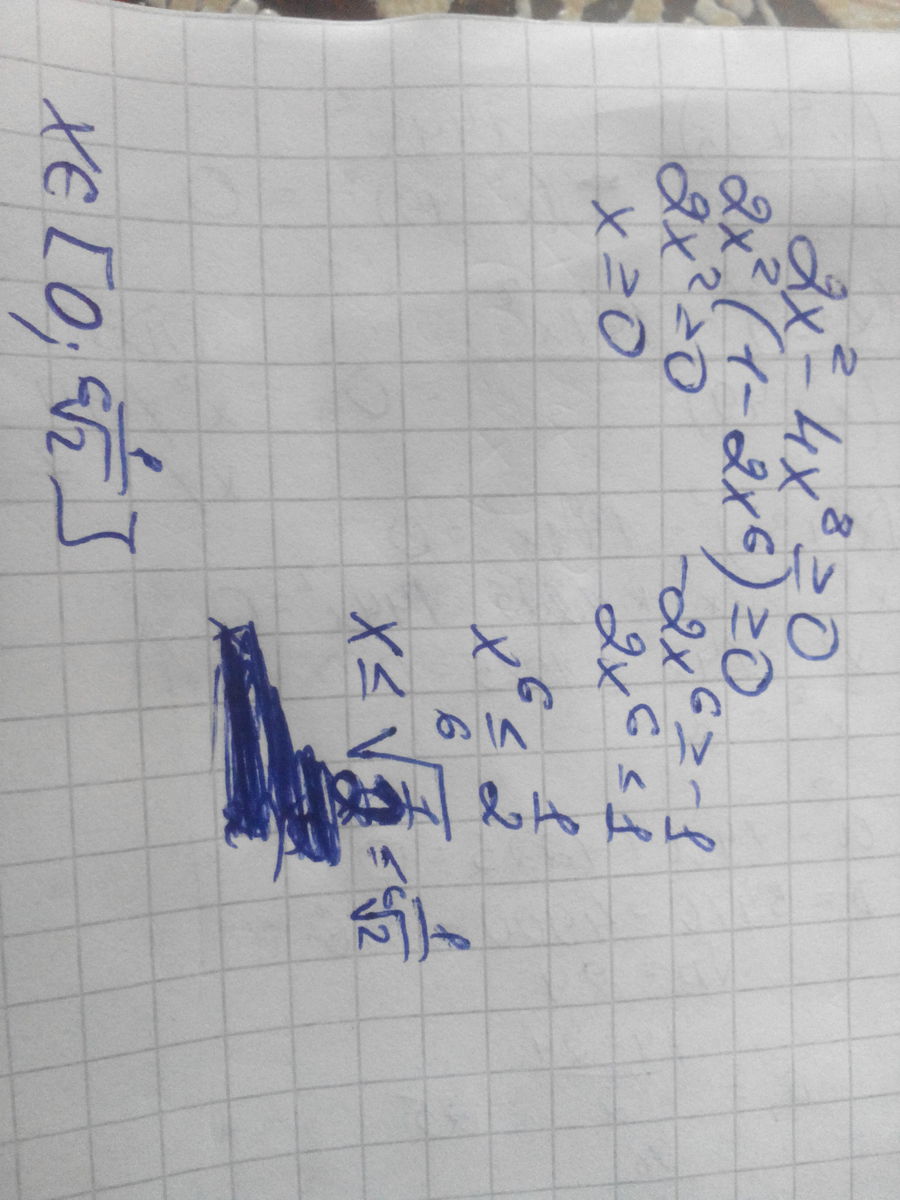 2x² - 4x⁸ ≥ 0
2x²(1 - 2x⁶) ≥ 0
2x² ≥ 0
x ≥ 0
-2x⁶ ≥ -1
2x⁶ ≤ 1
x⁶ ≤ 1/2
x ≤ ⁶√(1/2) ≤ 1/⁶√2
x ∈ [0; 1/⁶√2]